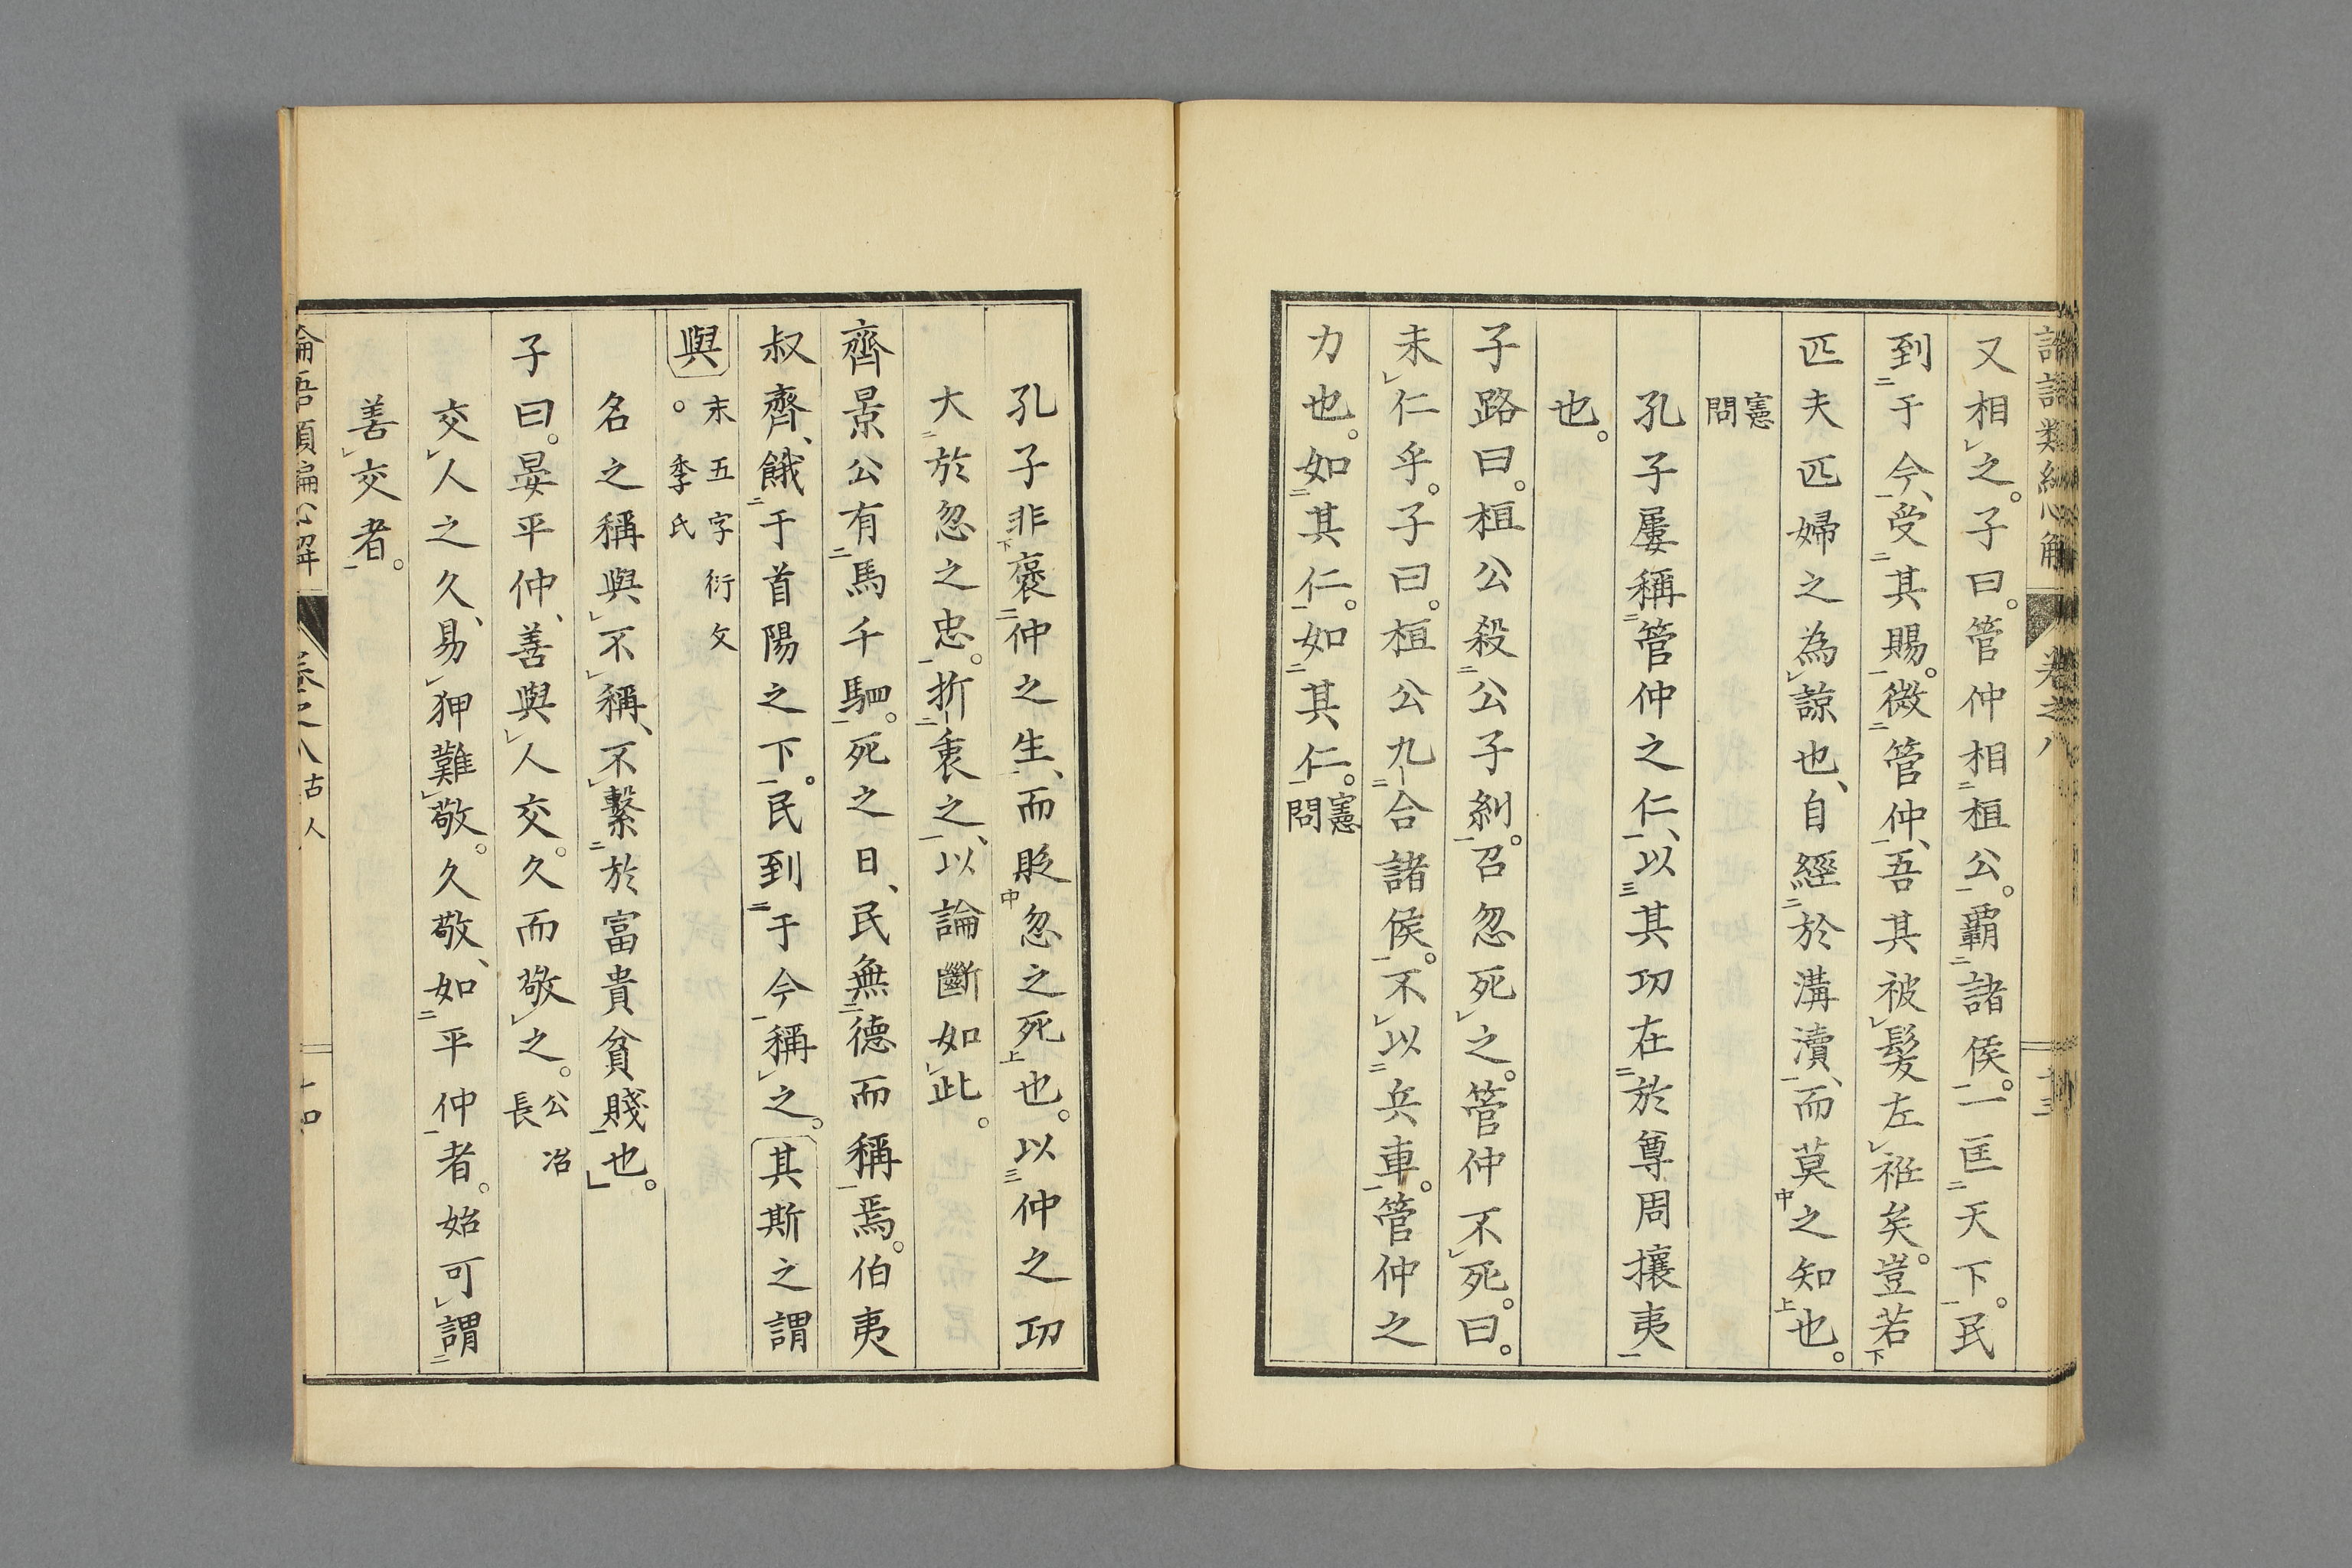 又相之。子曰。管仲相桓公。霸諸侯。一匡天下。民
到于今、受其賜。微管仲、吾其被髮左衽矣。豈若
匹夫匹婦之為諒也、自經於溝瀆、而莫之知也。
憲問
孔子屢稱管仲之仁、以其功在於尊周攘夷
也。
子路曰。桓公殺公子糾。召忽死之。管仲不死。曰。
未仁乎。子曰。桓公九合諸侯。不以兵車。管仲之
力也。如其仁。如其仁。憲問
孔子非褒仲之生、而貶忽之死也。以仲之功
大於忽之忠。折衷之、以論斷如此。
齊景公有馬千駟。死之日、民無德而稱焉。伯夷
叔齊、餓于首陽之下。民到于今稱之。其斯之謂
與 末五字衍文。季氏
名之稱與不稱、不繫於富貴貧賤也。
子曰。晏平仲、善與人交。久而敬之。公冶長
交人之久、易狎難敬。久敬、如平仲者。始可謂
善交者。
卷之八 古人